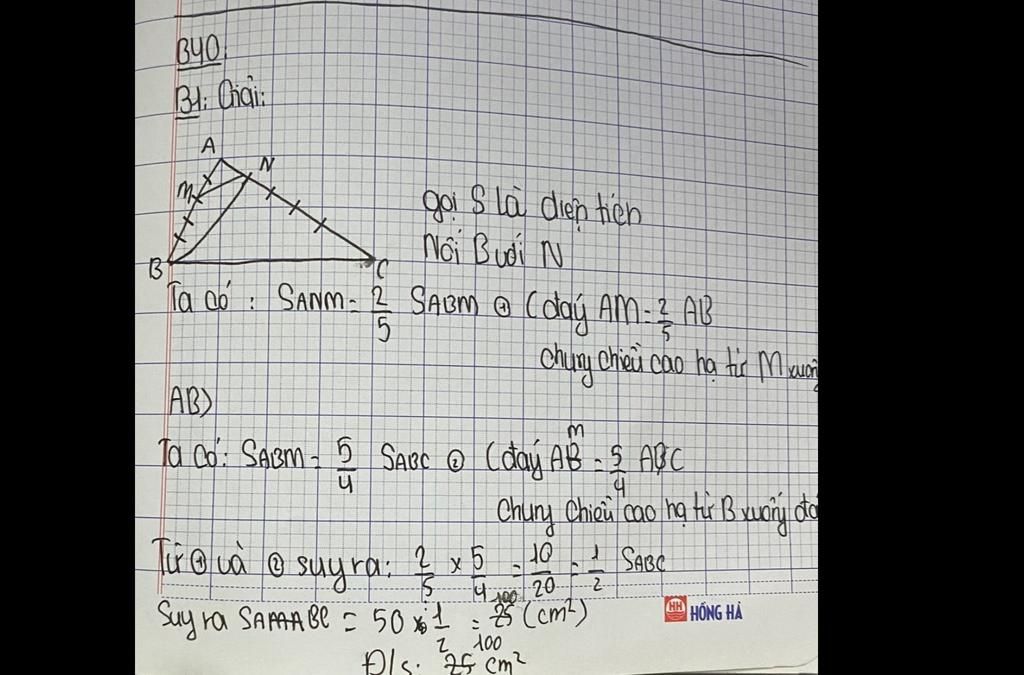 B40:
B1: Giải:
A
N
M
B
C
gọi S là diện tích
Nối B với N
Ta có: SANM = 2/5 SABM ① (đáy AM = 2/5 AB
chung chiều cao hạ từ M xuống
AB)
m
Ta có: SABM = 5/4 SABC ② (đáy AB = 5/4 ABC
chung chiều cao hạ từ B xuống
Từ ① và ② suy ra: 2/5 x 5/4 = 10/20 = 1/2 SABC
100
Suy ra = 50 : 1/2 = 25 (cm²)
HH HỒNG HÀ
100
Đ/s: 25 cm²